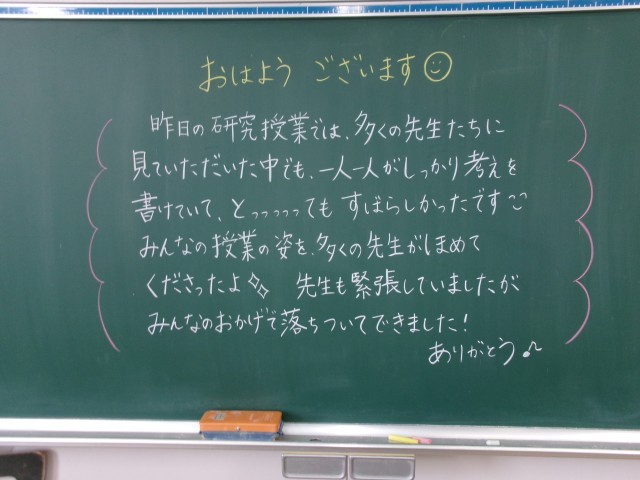 おはよう ございます
昨日の研究授業では、多くの先生たちに
見ていただいた中でも、一人一人がしっかり考えを
書けていて、とっっっっっても すばらしかったです
みんなの授業の姿を、多くの先生がほめて
くださったよ 先生も緊張していましたが
みんなのおかげで落ちついてできました!
ありがとう♪